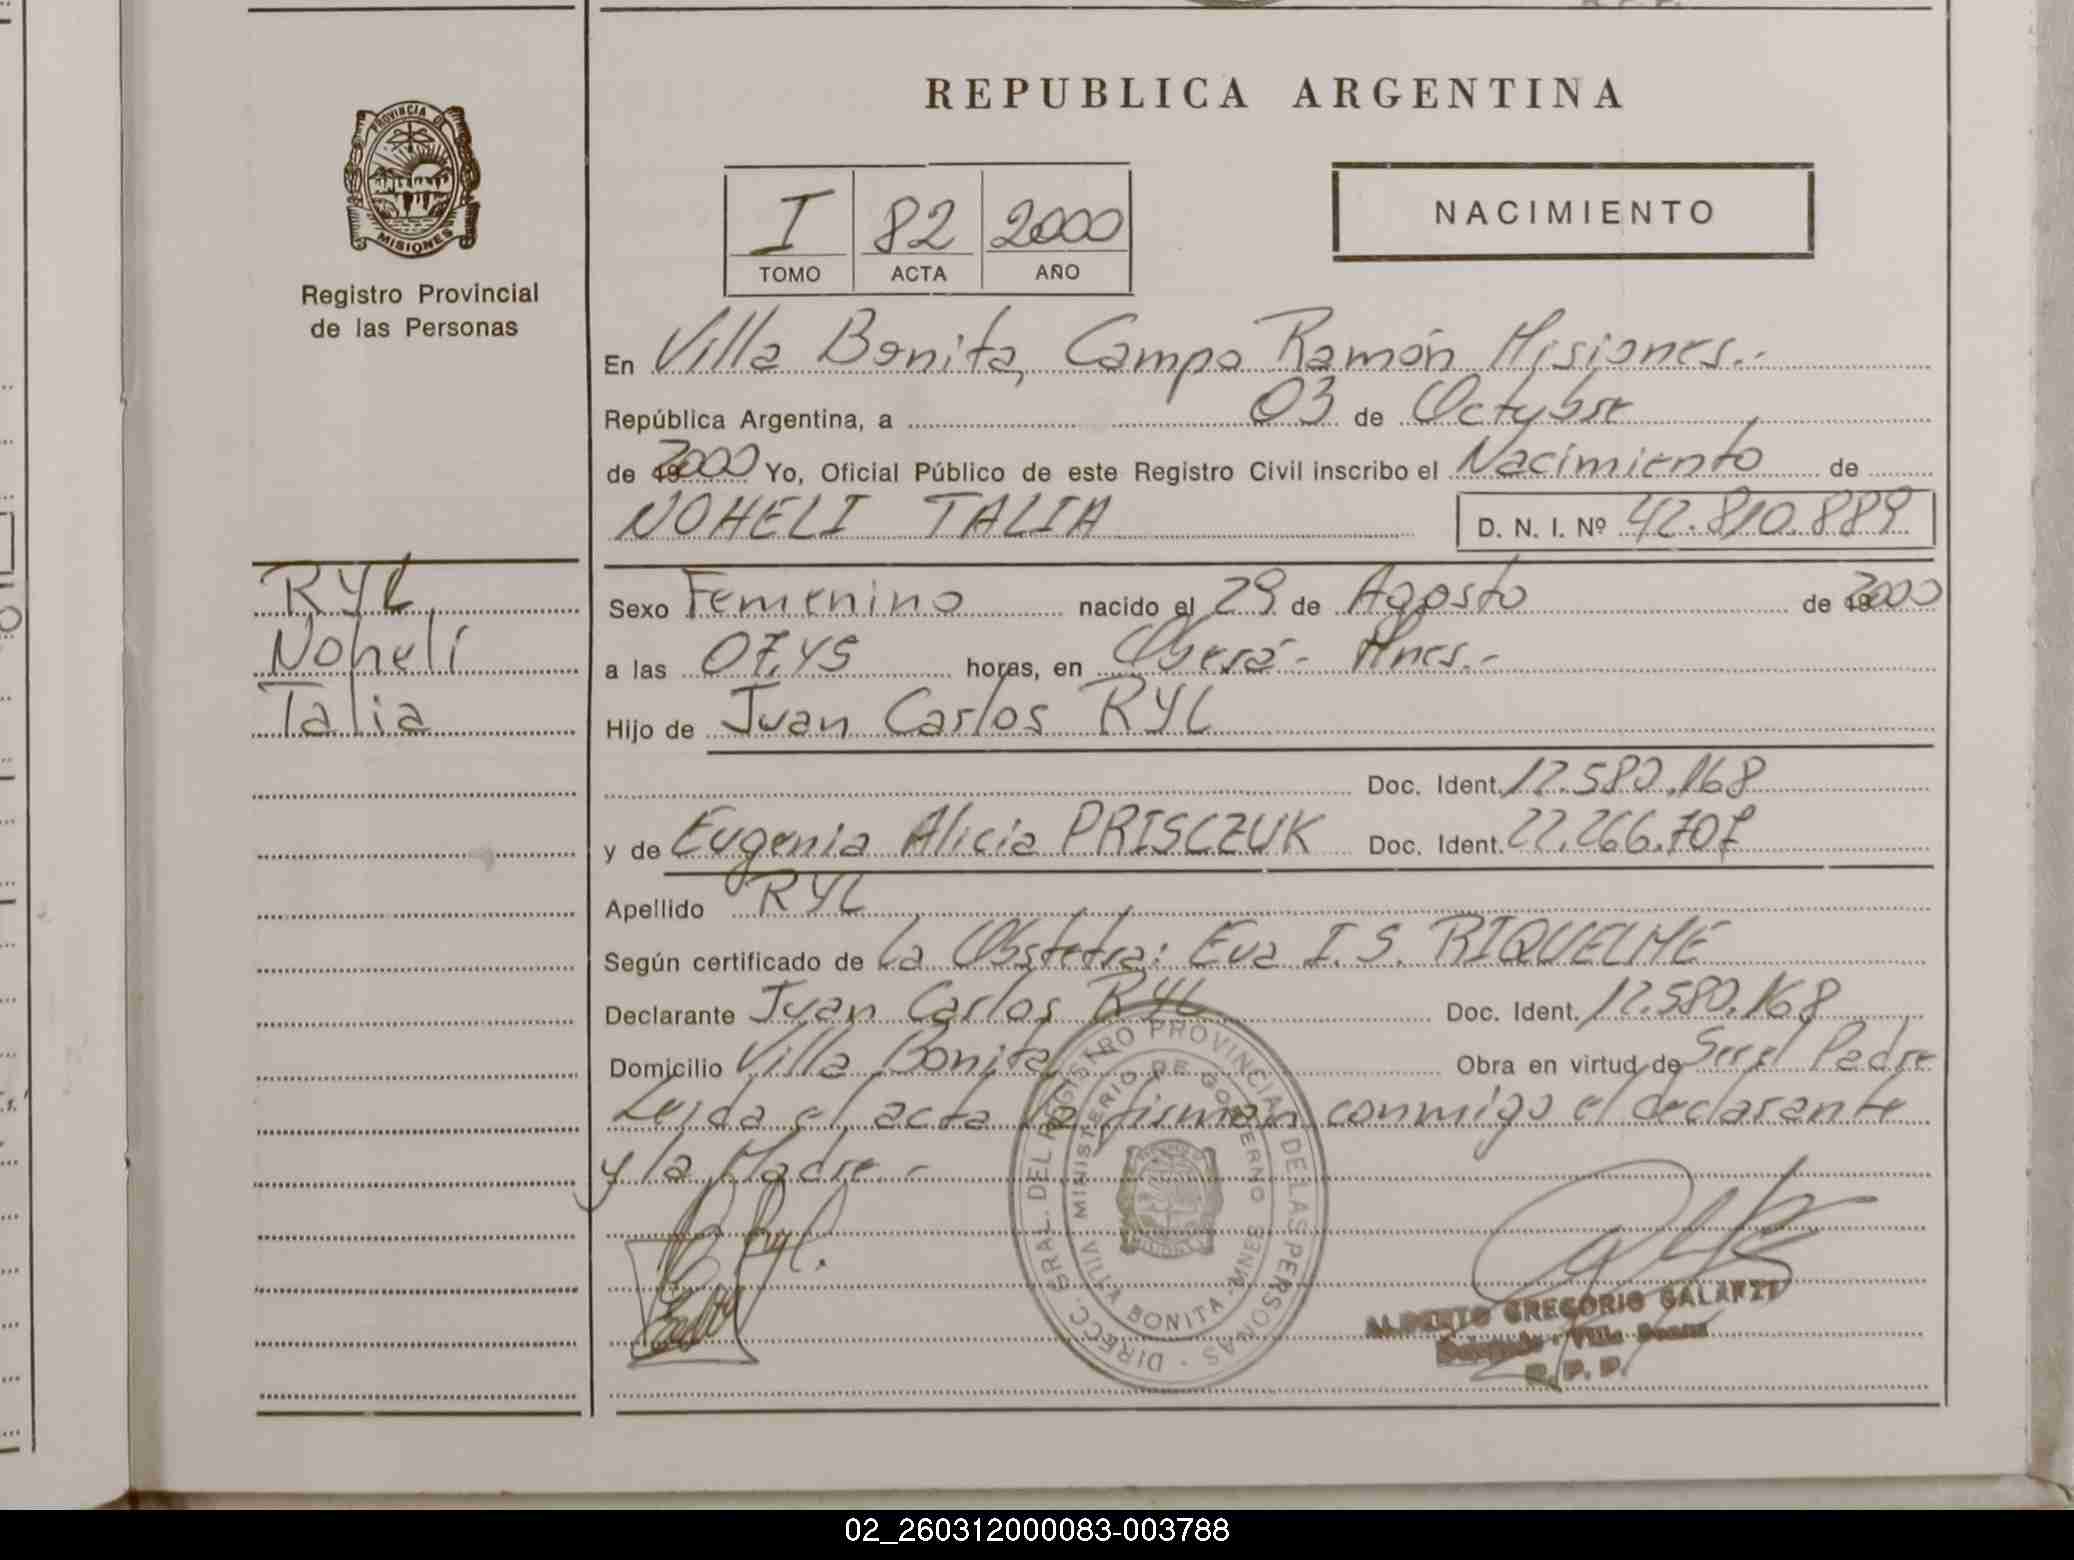 REPUBLICA ARGENTINA
PROVINCIA DE
MISIONES
Registro Provincial
de las Personas
I 82 2000
TOMO ACTA AÑO
NACIMIENTO
En Villa Bonita, Campo Ramón Misiones.-
República Argentina, a 03 de Octubre
de 2000 Yo, Oficial Público de este Registro Civil inscribo el Nacimiento de
NOHELI TALIA D. N. I. Nº 42.810.889
RYL
Noheli
Talia
Sexo Femenino nacido el 29 de Agosto de 2000
a las 07,45 horas, en Oberá- Mnes.-
Hijo de Juan Carlos RYL
Doc. Ident. 12.580.168
y de Eugenia Alicia PRISCZUK Doc. Ident. 22.266.707
Apellido RYL
Según certificado de La Obstetra: Eva I. S. RIQUELME
Declarante Juan Carlos RYL Doc. Ident. 12.580.168
Domicilio Villa Bonita Obra en virtud de Ser el Padre
Leida el acta la firman conmigo el declarante
y la Madre.-
DIRECC. GRAL. DEL REGISTRO PROVINCIAL DE LAS PERSONAS
MINISTERIO DE GOBIERNO
VILLA BONITA - MNES
Ryl.
ALBERTO GREGORIO
R. P. P.
02_260312000083-003788